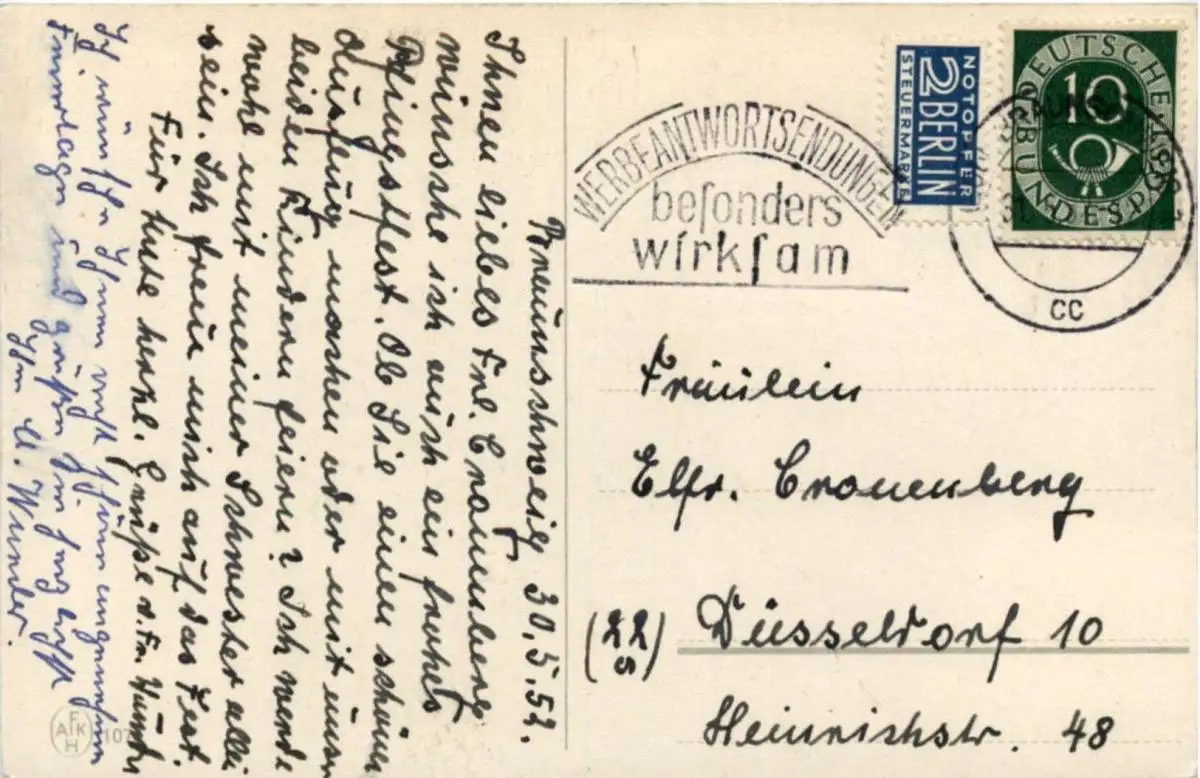 Braunschweig 30.5.52.
Ihnen liebes Frl. Cronenberg
wünsche ich auch ein frohes
Pfingstfest. Ob Sie einen schönen
Ausflug machen oder mit unsen
beiden Kindern feiern? Ich werde
wohl mit meiner Schwester allei
sein. Ich freue mich auf das Fest.
Für heute herzl. Grüße v. Fr.
Ich wünsche Ihnen recht schöne angenehme
und grüße Sie herzlichst
Ihre U. Wunder.
WERBEANTWORTSENDUNGEN
besonders
wirksam
NOTOPFER
2 BERLIN
STEUERMARKE
DEUTSCHE
10
BUNDESPOST
cc
Fräulein
Elfr. Cronenberg
(22
Düsseldorf 10
Heinrichstr. 48
AFKH
107